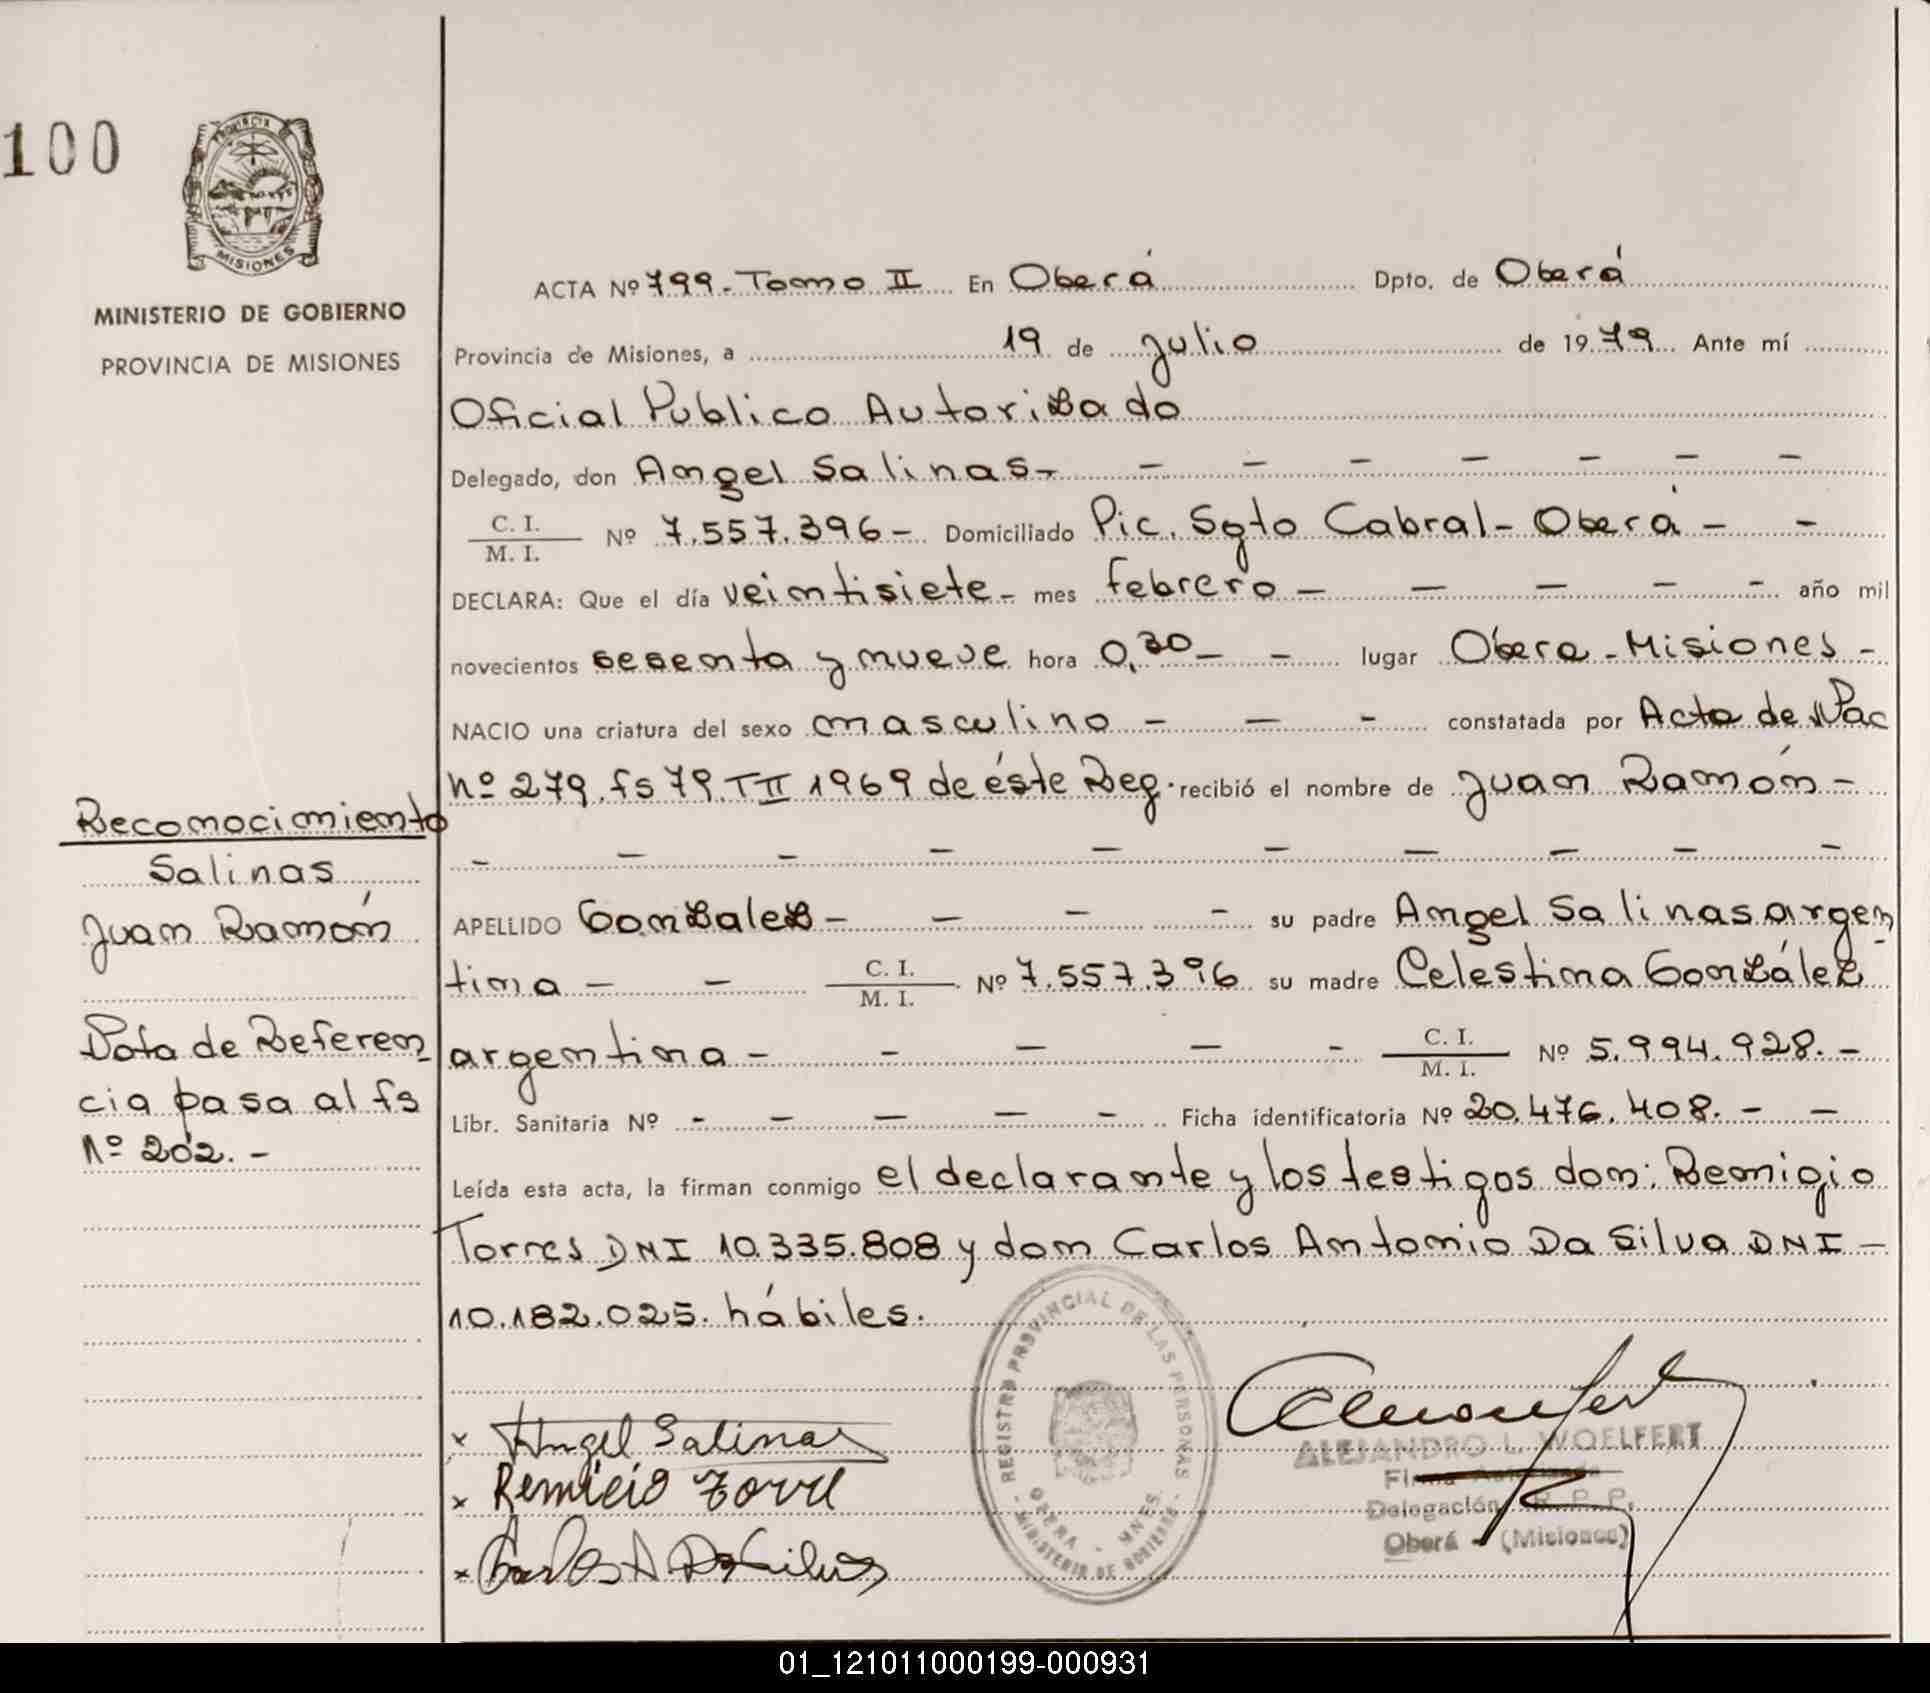 100
PROVINCIA
MISIONES
MINISTERIO DE GOBIERNO
PROVINCIA DE MISIONES
ACTA Nº 799.- Tomo II En Oberá Dpto. de Oberá
Provincia de Misiones, a 19 de Julio de 1979 Ante mí
Oficial Publico Autorizado
Delegado, don Angel Salinas.- - - - - - - -
C. I. / M. I. Nº 7.557.396 - Domiciliado Pic. Sgto Cabral - Oberá - -
DECLARA: Que el día veintisiete - mes febrero - - - - - año mil
novecientos sesenta y nueve hora 0,30 - - lugar Obera - Misiones -
NACIO una criatura del sexo masculino - - - constatada por Acta de Nac
Nº 279. fs 79. T II 1969 de éste Reg. recibió el nombre de Juan Ramón -
- - - - - - - - - -
APELLIDO Gonzalez - - - - su padre Angel Salinas argen
tina - - C. I. / M. I. Nº 7.557.396 su madre Celestina González -
argentina - - - - - C. I. / M. I. Nº 5.994.928. -
Libr. Sanitaria Nº - - - - - Ficha identificatoria Nº 20.476.408. - -
Leída esta acta, la firman conmigo el declarante y los testigos don: Remigio
Torres DNI 10.335.808 y don Carlos Antonio Da Silva DNI -
10.182.025. hábiles.
Reconocimiento
Salinas
Juan Ramón
Nota de Referen
cia pasa al fs
Nº 202. -
x Angel Salinas
x Remicio Torre
x Carlos A Da Silva
REGISTRO PROVINCIAL DE LAS PERSONAS
OBERA - MNES.
MINISTERIO DE GOBIERNO
ALEJANDRO L. WOELFERT
Firma Autorizada
Delegación R. P. P.
Oberá - (Misiones)
01_121011000199-000931